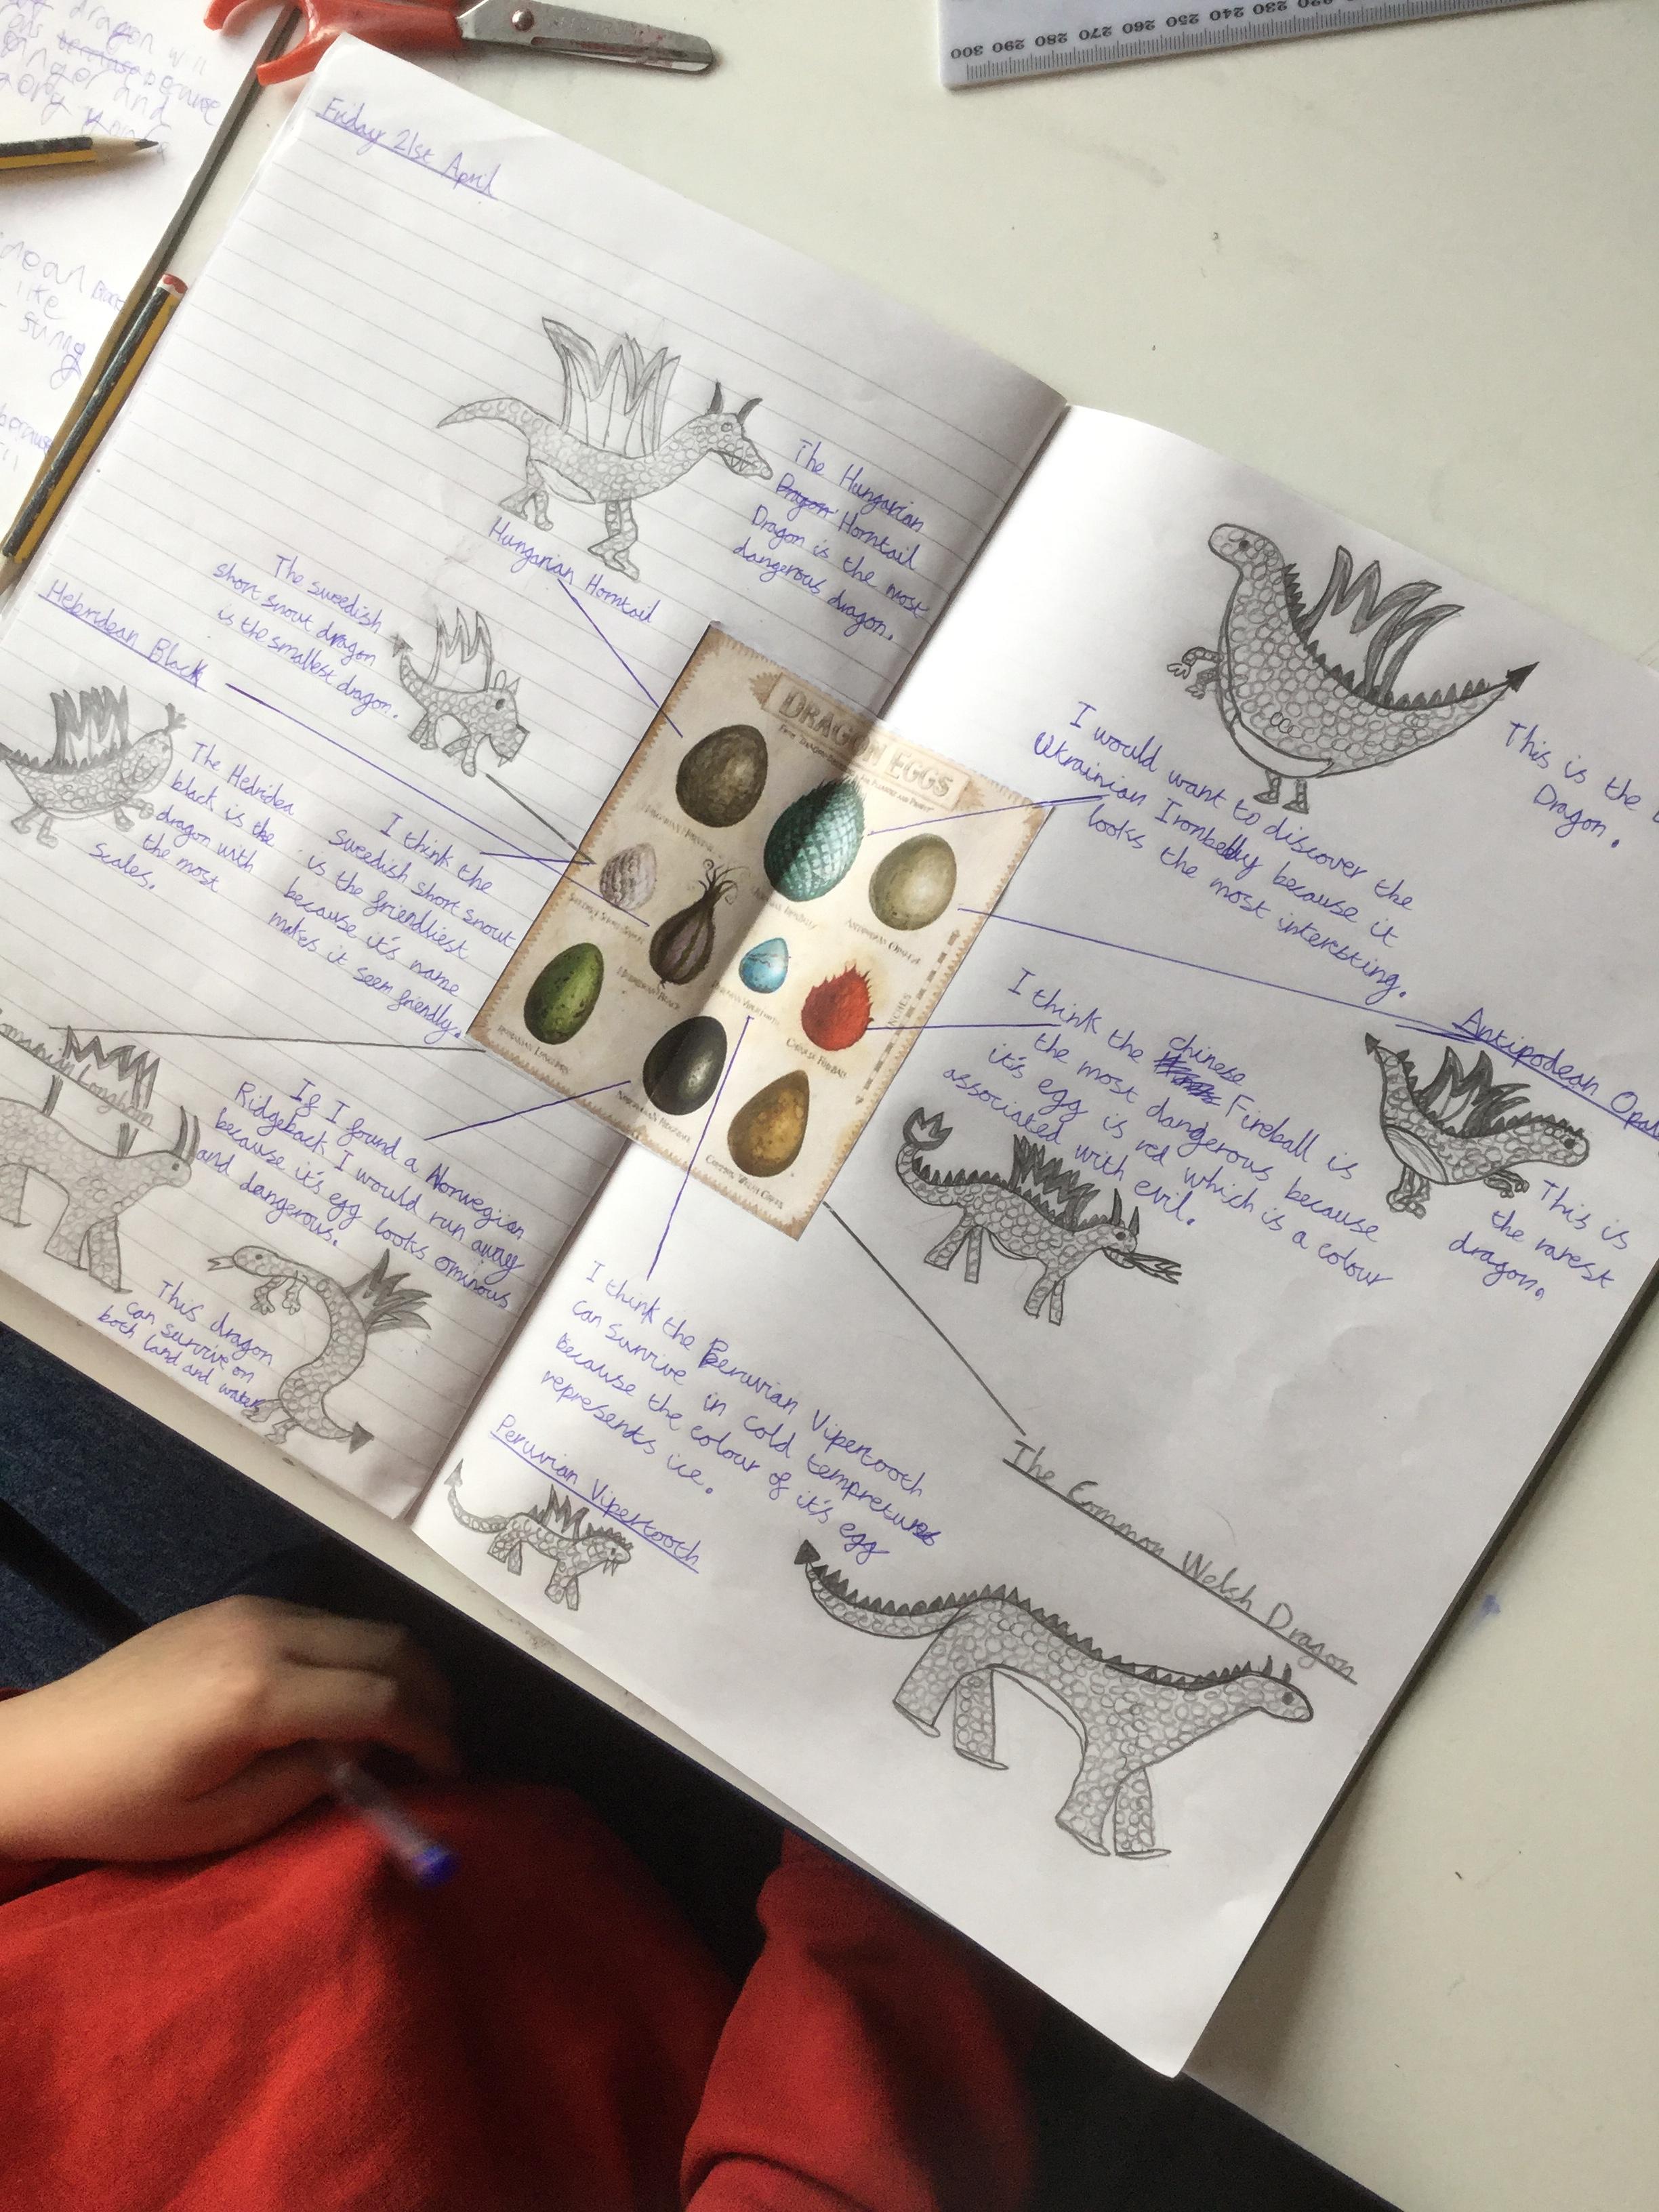 Friday 21st April
The Hungarian
Dragon Horntail
Dragon is the most
dangerous dragon.
Hungarian Horntail
The swedish
short snout dragon
is the smallest dragon.
Hebridean Black
The Hebridea
black is the
dragon with
the most
scales.
I think the
Swedish short snout
is the friendliest
because it's name
makes it seem friendly.
Longhorn
If I found a Norwegian
Ridgeback I would run away
because it's egg looks ominous
and dangerous.
This dragon
can survive on
both land and water
DRAGON EGGS
HUNGARIAN HORNTAIL
ANTIPODEAN OPALEYE
SWEDISH SHORT-SNOUT
HEBRIDEAN BLACK
PERUVIAN VIPERTOOTH
CHINESE FIREBALL
ROMANIAN LONGHORN
NORWEGIAN RIDGEBACK
COMMON WELSH GREEN
INCHES
This is the
Dragon.
I would want to discover the
Ukrainian Ironbelly because it
looks the most intersting.
Antipodean
This is
the rarest
dragon.
I think the chinese
Fireball is
the most dangerous because
it's egg is red which is a colour
associated with evil.
I think the Peruvian Vipertooth
can survive in cold tempretures
because the colour of it's egg
represents ice.
Peruvian Vipertooth
The Common Welsh Dragon
300 290 280 270 260 250 240 230 220
dragon will
because
and
like